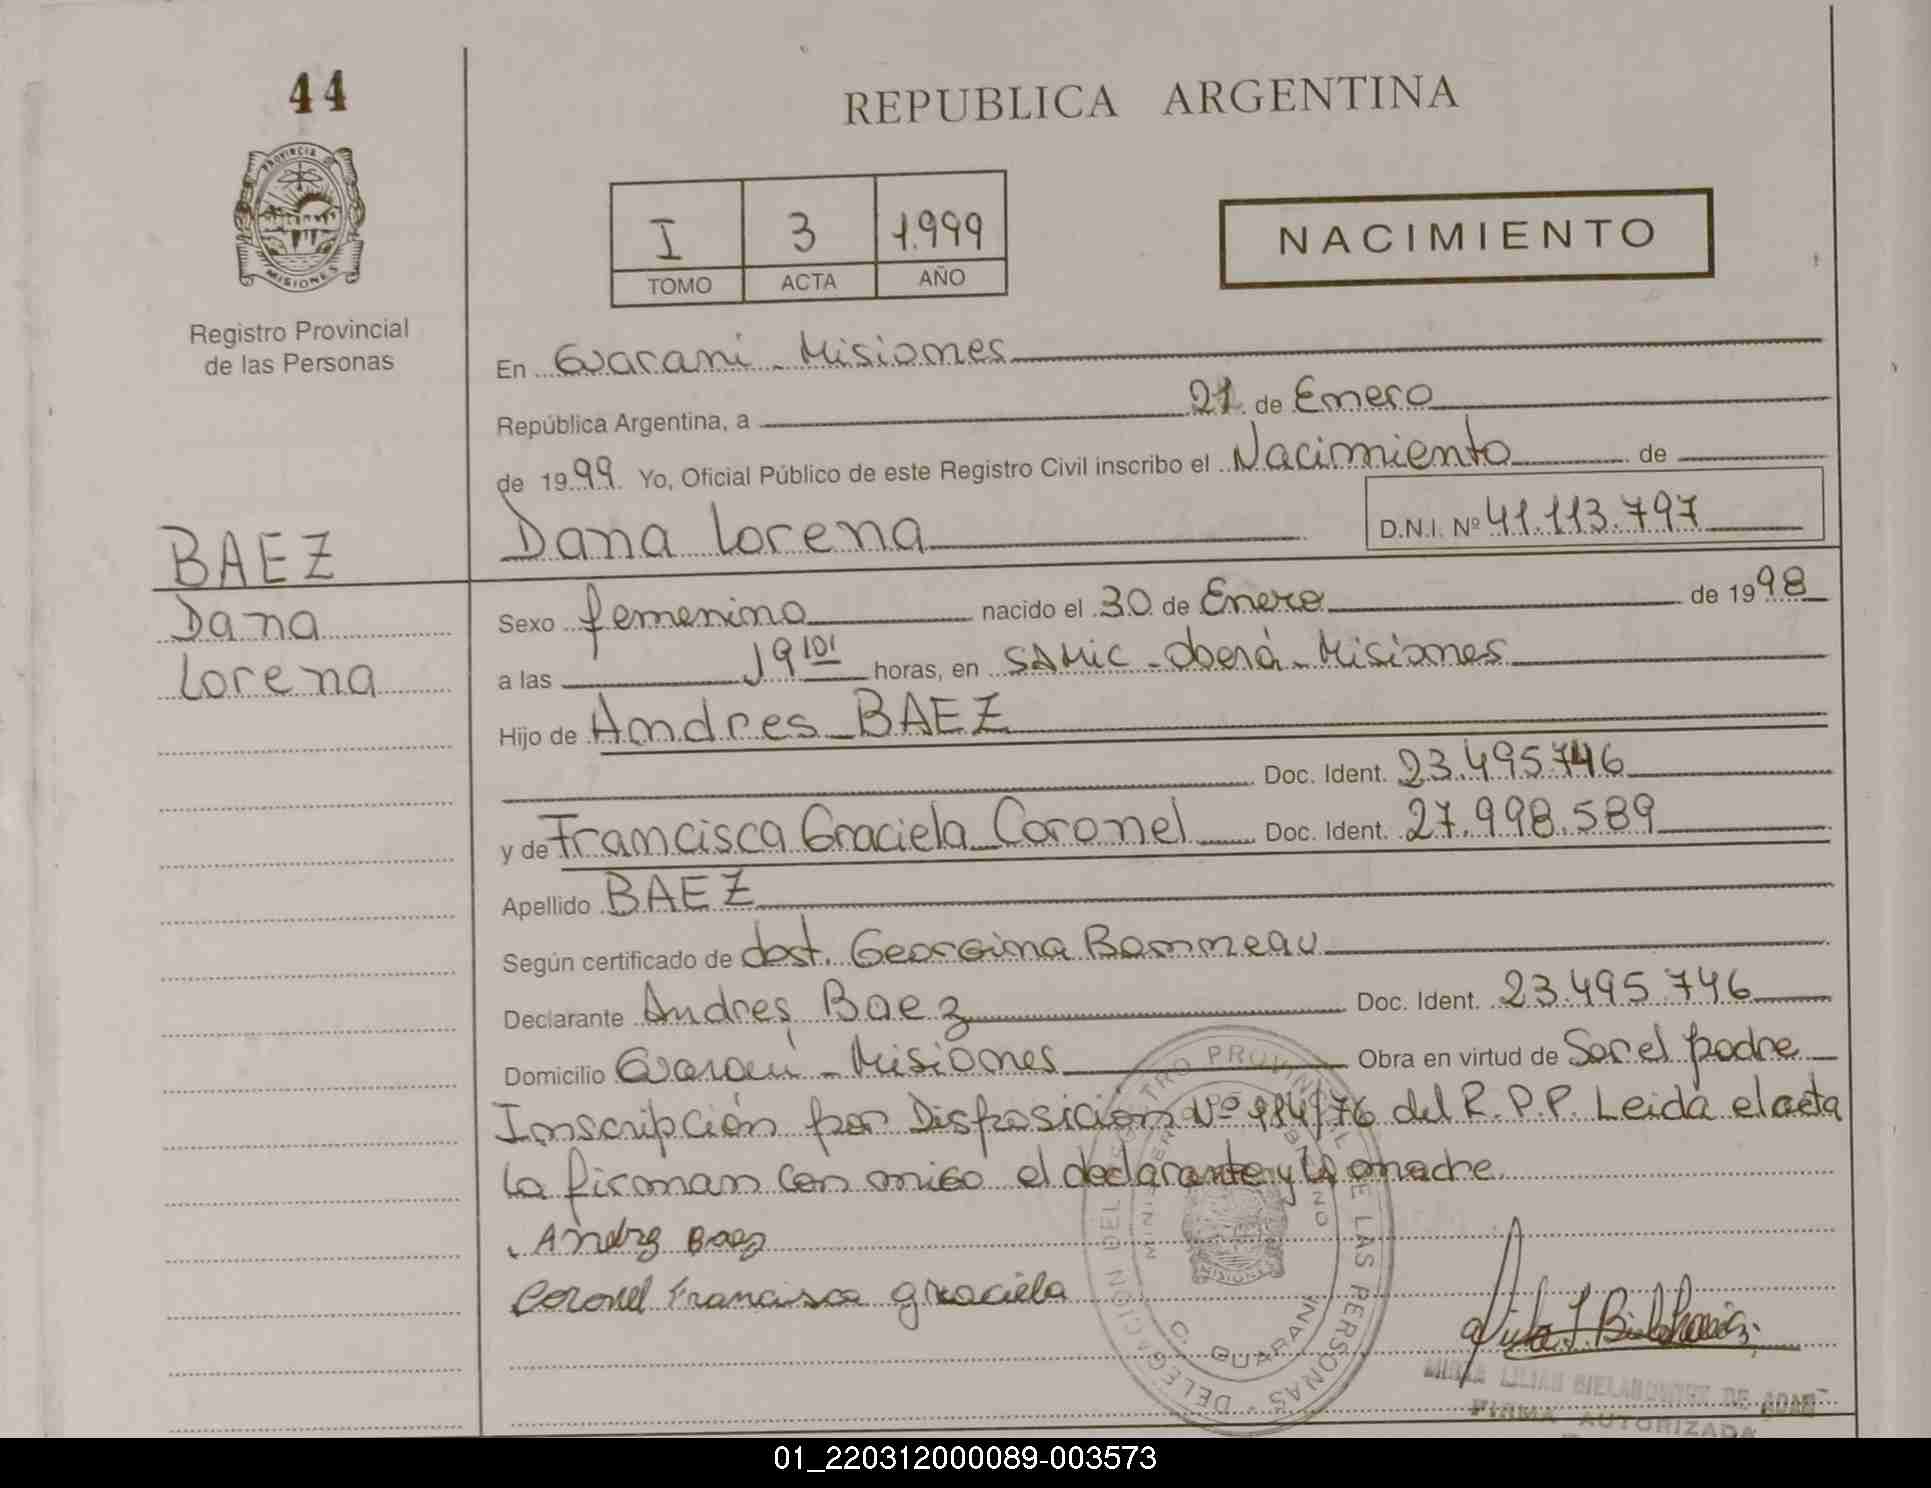 44
PROVINCIA DE
MISIONES
Registro Provincial
de las Personas
REPUBLICA ARGENTINA
I 3 1.999
TOMO ACTA AÑO
NACIMIENTO
En Guarani - Misiones
República Argentina, a 21 de Enero
de 1999 Yo, Oficial Público de este Registro Civil inscribo el Nacimiento de
Dana Lorena D.N.I. Nº 41.113.797
BAEZ
Dana
Lorena
Sexo femenino nacido el 30 de Enero de 1998
a las 19 101 horas, en SAMIC - Oberá - Misiones
Hijo de Andres BAEZ
Doc. Ident. 23.495.746
y de Francisca Graciela Coronel Doc. Ident. 27.998.589
Apellido BAEZ
Según certificado de obst. Georgina
Declarante Andres Baez Doc. Ident. 23.495.746
Domicilio Guarani - Misiones Obra en virtud de Ser el padre
Inscripción por Disposición Nº 984/76 del R.P.P. Leida el acta
la firman con migo el declarante y la madre
Andrz Baez
Coronel Francisca graciela
DELEGACION DEL REGISTRO PROVINCIAL DE LAS PERSONAS
C. GUARANI
MISIONES
FIRMA AUTORIZADA
01_220312000089-003573